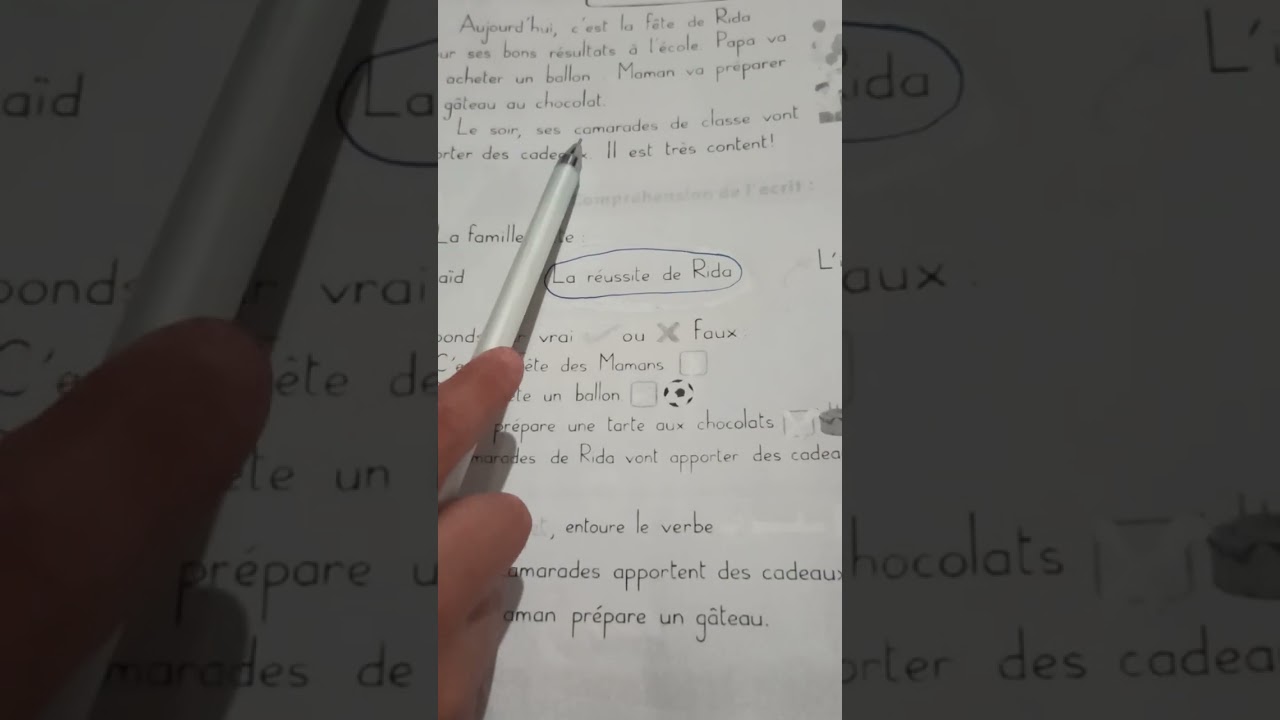 Aujourd'hui, c'est la fête de Rida
ur ses bons résultats à l'école. Papa va
acheter un ballon. Maman va préparer
gâteau au chocolat.
Le soir, ses camarades de classe vont
orter des cade x. Il est très content!
Compréhension de l'écrit :
La famille te :
aïd La réussite de Rida L'
ponds r vrai ou X Faux
C'e ête des Mamans
te un ballon
prépare une tarte aux chocolats
marades de Rida vont apporter des cadea
t, entoure le verbe
amarades apportent des cadeaux
aman prépare un gâteau.